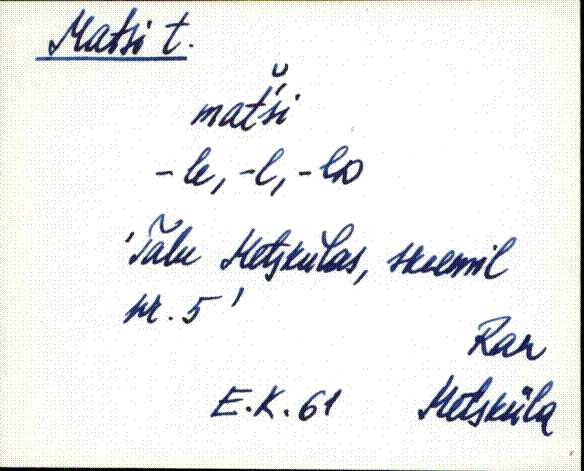 Matsi t.
matši
-le, -l, -lD
'Talu Metskülas, skeemil
nr. 5'
Rar
E.K. 61 Metsküla